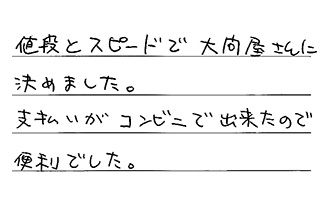 値段とスピードで大向屋さんに
決めました。
支払いがコンビニで出来たので
便利でした。